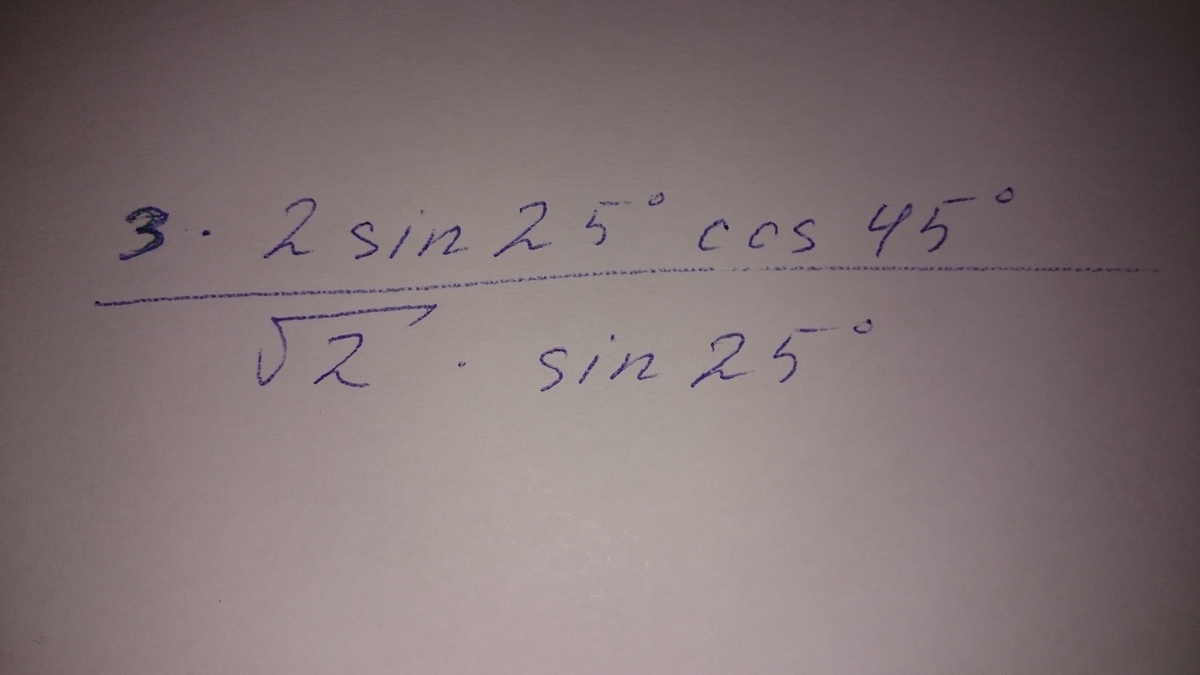 3 · 2 sin 25° cos 45°
√2 · sin 25°